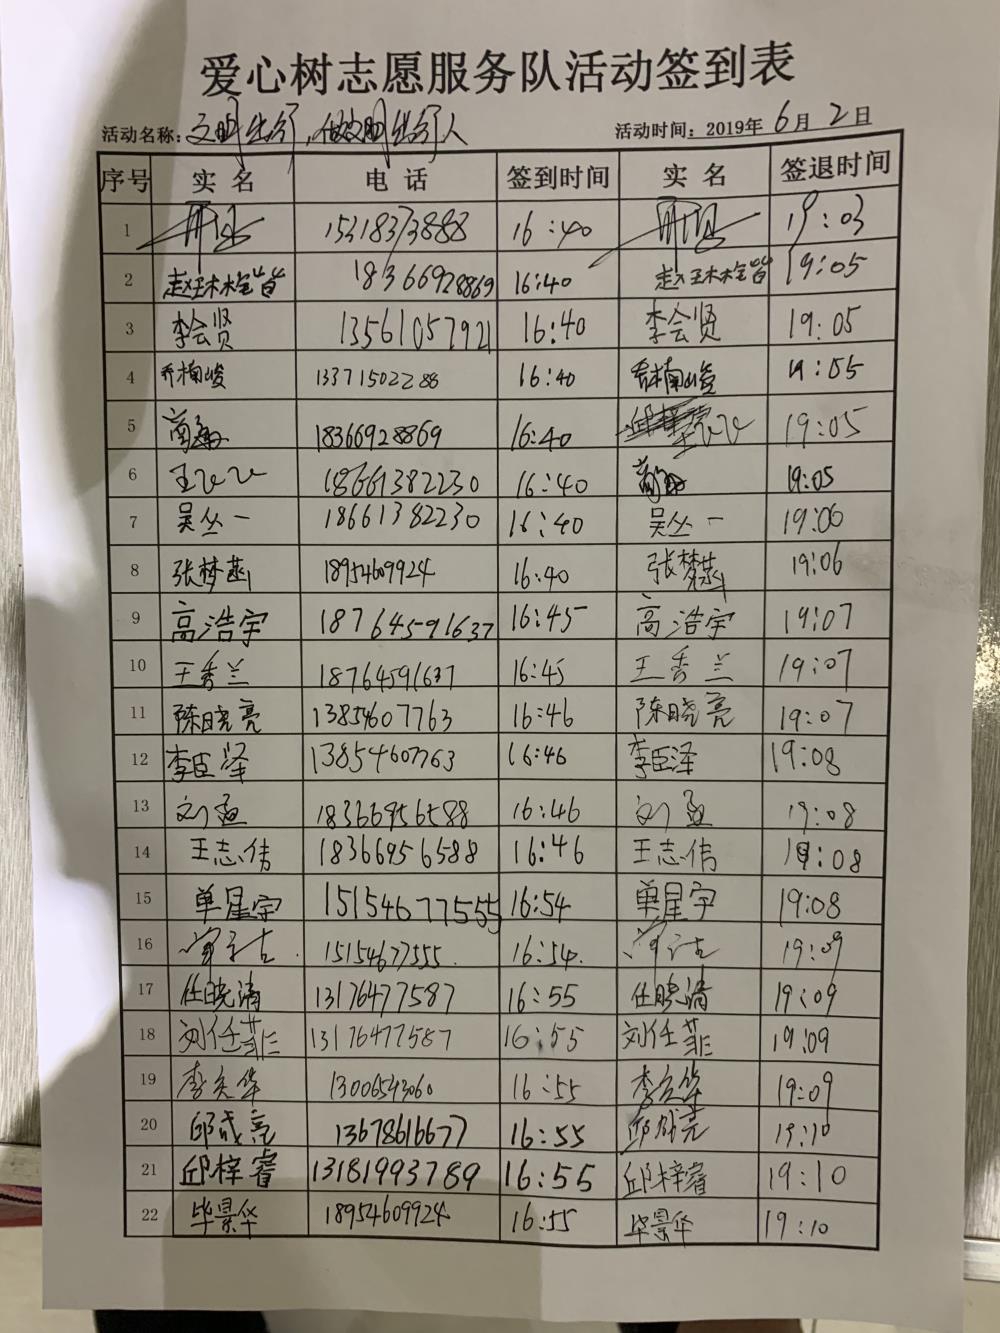 爱心树志愿服务队活动签到表
活动名称：文明出行，做文明出行人 活动时间：2019年 6月 2日
序号 实名 电话 签到时间 实名 签退时间
1 15318373888 16:40 19:03
2 18366928869 16:40 19:05
3 李会贤 13561057921 16:40 李会贤 19:05
4 乔楠峻 13371502288 16:40 乔楠峻 19:05
5 18366928869 16:40 19:05
6 18661382230 16:40 19:05
7 吴丛一 18661382230 16:40 吴丛一 19:06
8 张梦菡 18954609924 16:40 张梦菡 19:06
9 高浩宇 18764591637 16:45 高浩宇 19:07
10 王秀兰 18764591637 16:45 王秀兰 19:07
11 陈晓亮 13854607763 16:46 陈晓亮 19:07
12 李臣泽 13854607763 16:46 李臣泽 19:08
13 18366956588 16:46 19:08
14 王志伟 18366956588 16:46 王志伟 19:08
15 单星宇 15154677555 16:54 单星宇 19:08
16 15154677555 16:54 19:09
17 任晓清 13176477587 16:55 任晓清 19:09
18 刘任菲 13176477587 16:55 刘任菲 19:09
19 13006543060 16:55 19:09
20 邱成亮 13678616677 16:55 邱成亮 19:10
21 邱梓睿 13181993789 16:55 邱梓睿 19:10
22 毕景华 18954609924 16:55 毕景华 19:10